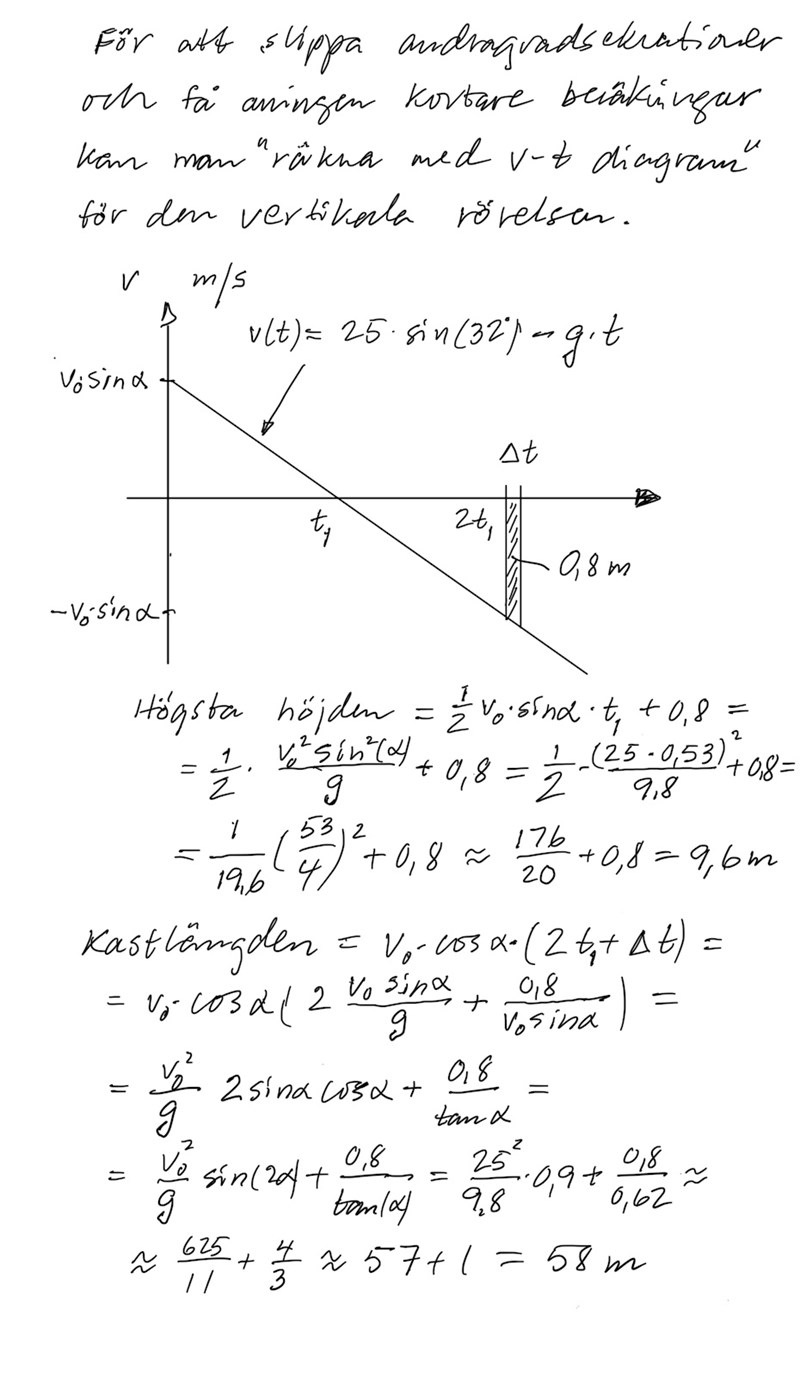 För att slippa andragradsekvationer
och få aningen kortare beräkingar
kan man "räkna med v-t diagram"
för den vertikala rörelsen.
v m/s
v(t)= 25·sin(32°) - g·t
v₀sinα
Δt
t₁
2t₁
0,8 m
-v₀·sinα
Högsta höjden = 1/2 v₀·sinα·t₁ + 0,8 =
= 1/2 · v₀²sin²(α)/g + 0,8 = 1/2 · (25·0,53)²/9,8 + 0,8 =
= 1/19,6 (53/4)² + 0,8 ≈ 176/20 + 0,8 = 9,6 m
Kastlängden = v₀·cosα·(2t₁ + Δt) =
= v₀·cosα(2 v₀ sinα/g + 0,8/v₀sinα) =
= v₀²/g 2sinα cosα + 0,8/tanα =
= v₀²/g sin(2α) + 0,8/tan(α) = 25²/9,8 · 0,9 + 0,8/0,62 ≈
≈ 625/11 + 4/3 ≈ 57+1 = 58 m